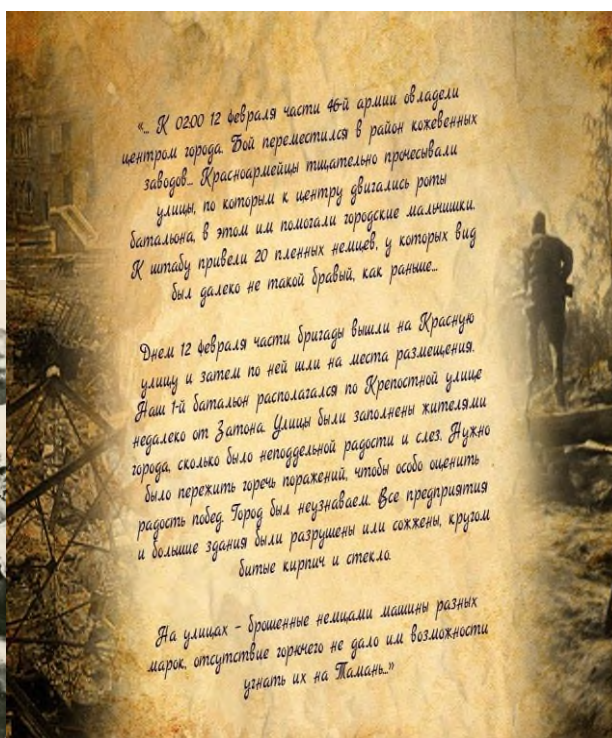 «... К 02.00 12 февраля части 46-й армии овладели
центром города. Бой переместился в район кожевенных
заводов... Красноармейцы тщательно прочесывали
улицы, по которым к центру двигались роты
батальона, в этом им помогали городские мальчишки.
К штабу привели 20 пленных немцев, у которых вид
был далеко не такой бравый, как раньше...
Днем 12 февраля части бригады вышли на Красную
улицу и затем по ней шли на места размещения.
Наш 1-й батальон располагался по Крепостной улице
недалеко от Затона. Улицы были заполнены жителями
города, сколько было неподдельной радости и слез. Нужно
было пережить горечь поражений, чтобы особо оценить
радость побед. Город был неузнаваем. Все предприятия
и большие здания были разрушены или сожжены, кругом
битые кирпич и стекло.
На улицах - брошенные немцами машины разных
марок, отсутствие горючего не дало им возможности
угнать их на Тамань...»